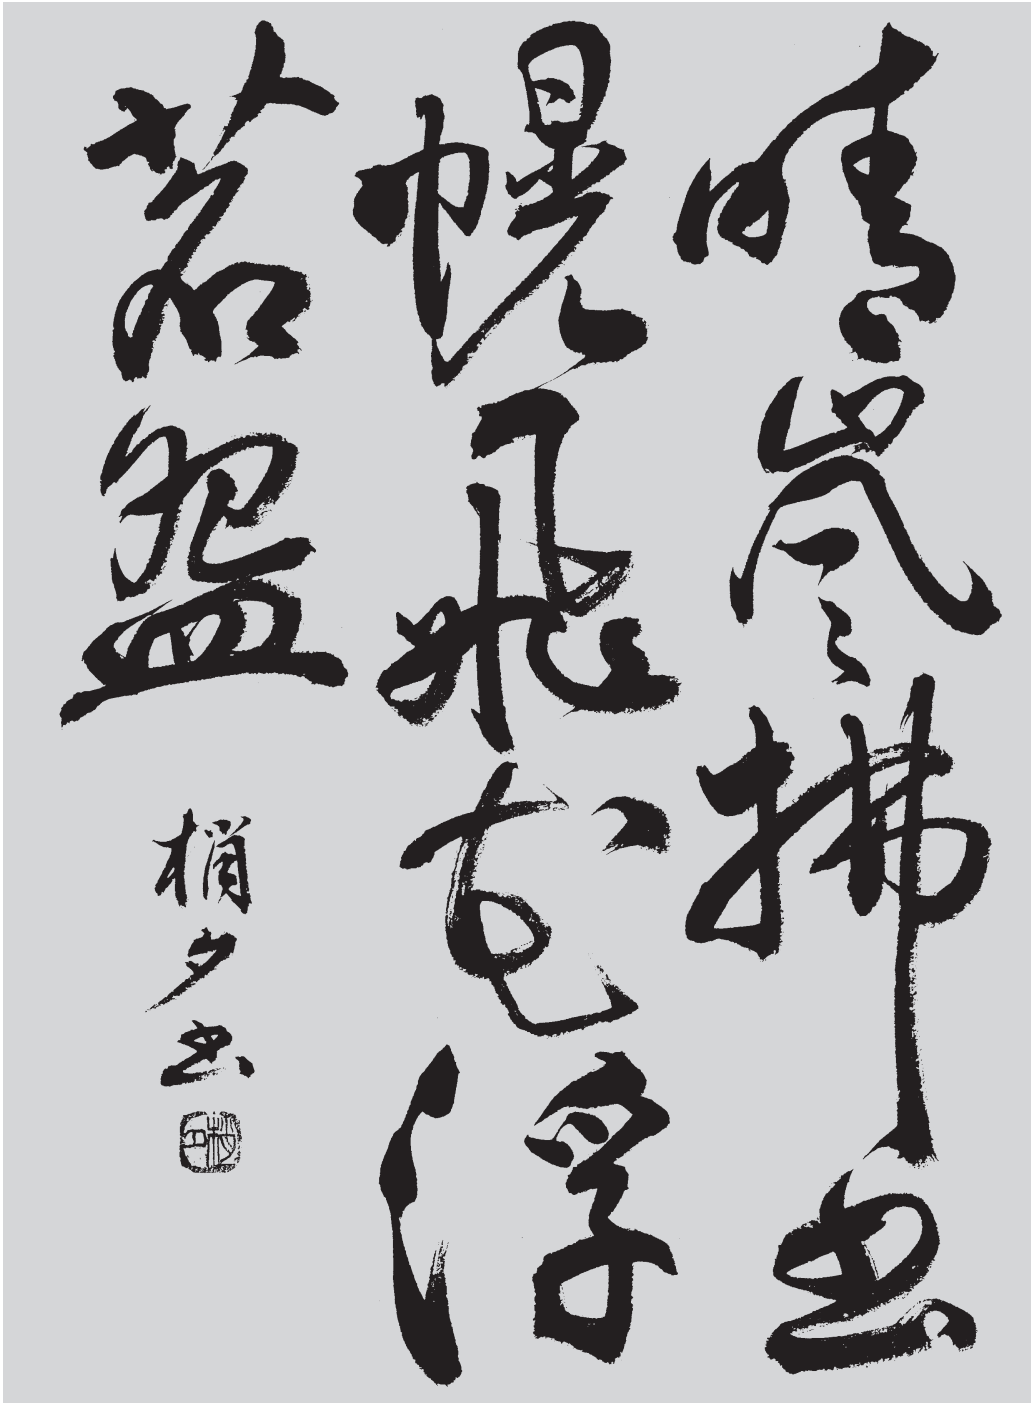 晴嵐拂書
幌飛花浮
茗盌
梢夕書